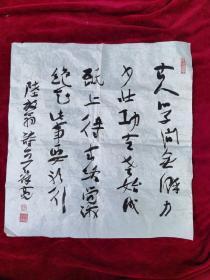 古人学问无遗力
少壮功夫老始成
纸上得来终觉浅
绝知此事要躬行
陸放翁詩